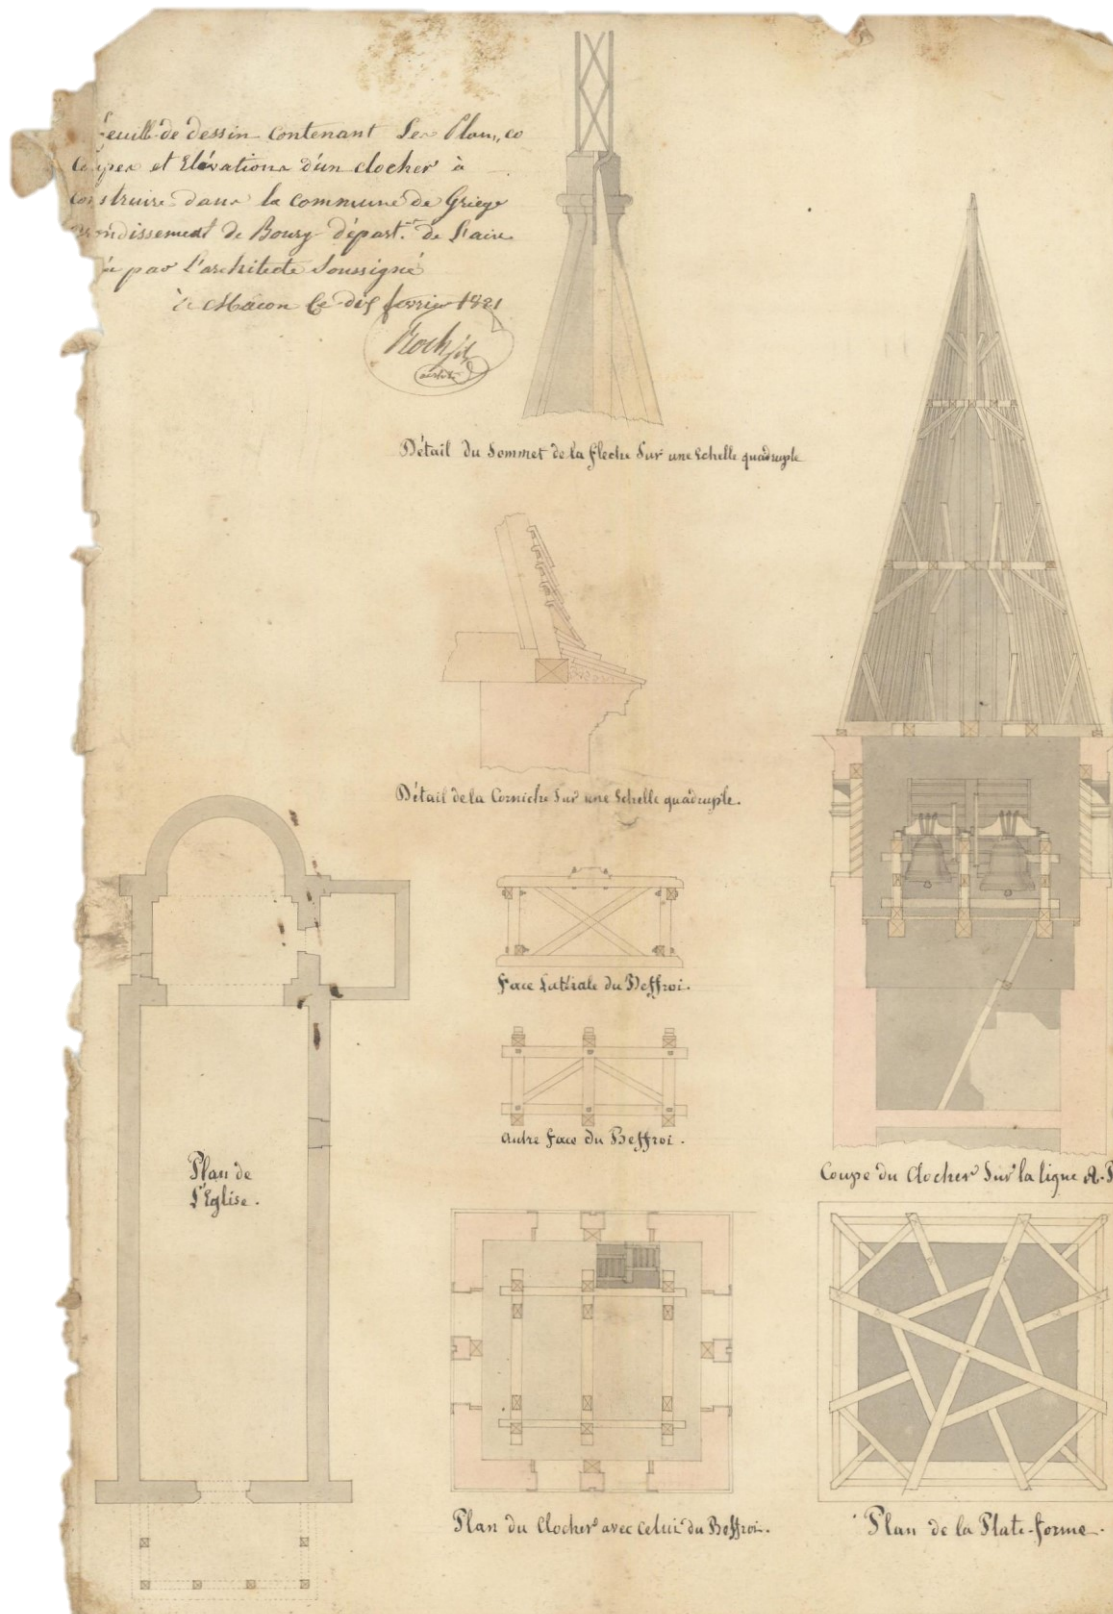 feuille de dessin contenant Les Plans, co
Coupes et Elévations d'un clocher à
construire dans la commune de Griege
arrondissement de Bourg départ.t de l'ain
par l'architecte Soussigné
à Macon Le dix fevrier 1821
Roch fils
Détail du Sommet de la fleche Sur une Echelle quadruple
Détail de la Corniche Sur une Echelle quadruple.
face Latérale du Beffroi.
autre face du Beffroi.
Plan de
L'Eglise.
Coupe du Clocher Sur la ligne A.
Plan du Clocher avec Celui du Beffroi.
Plan de la Plate-forme.